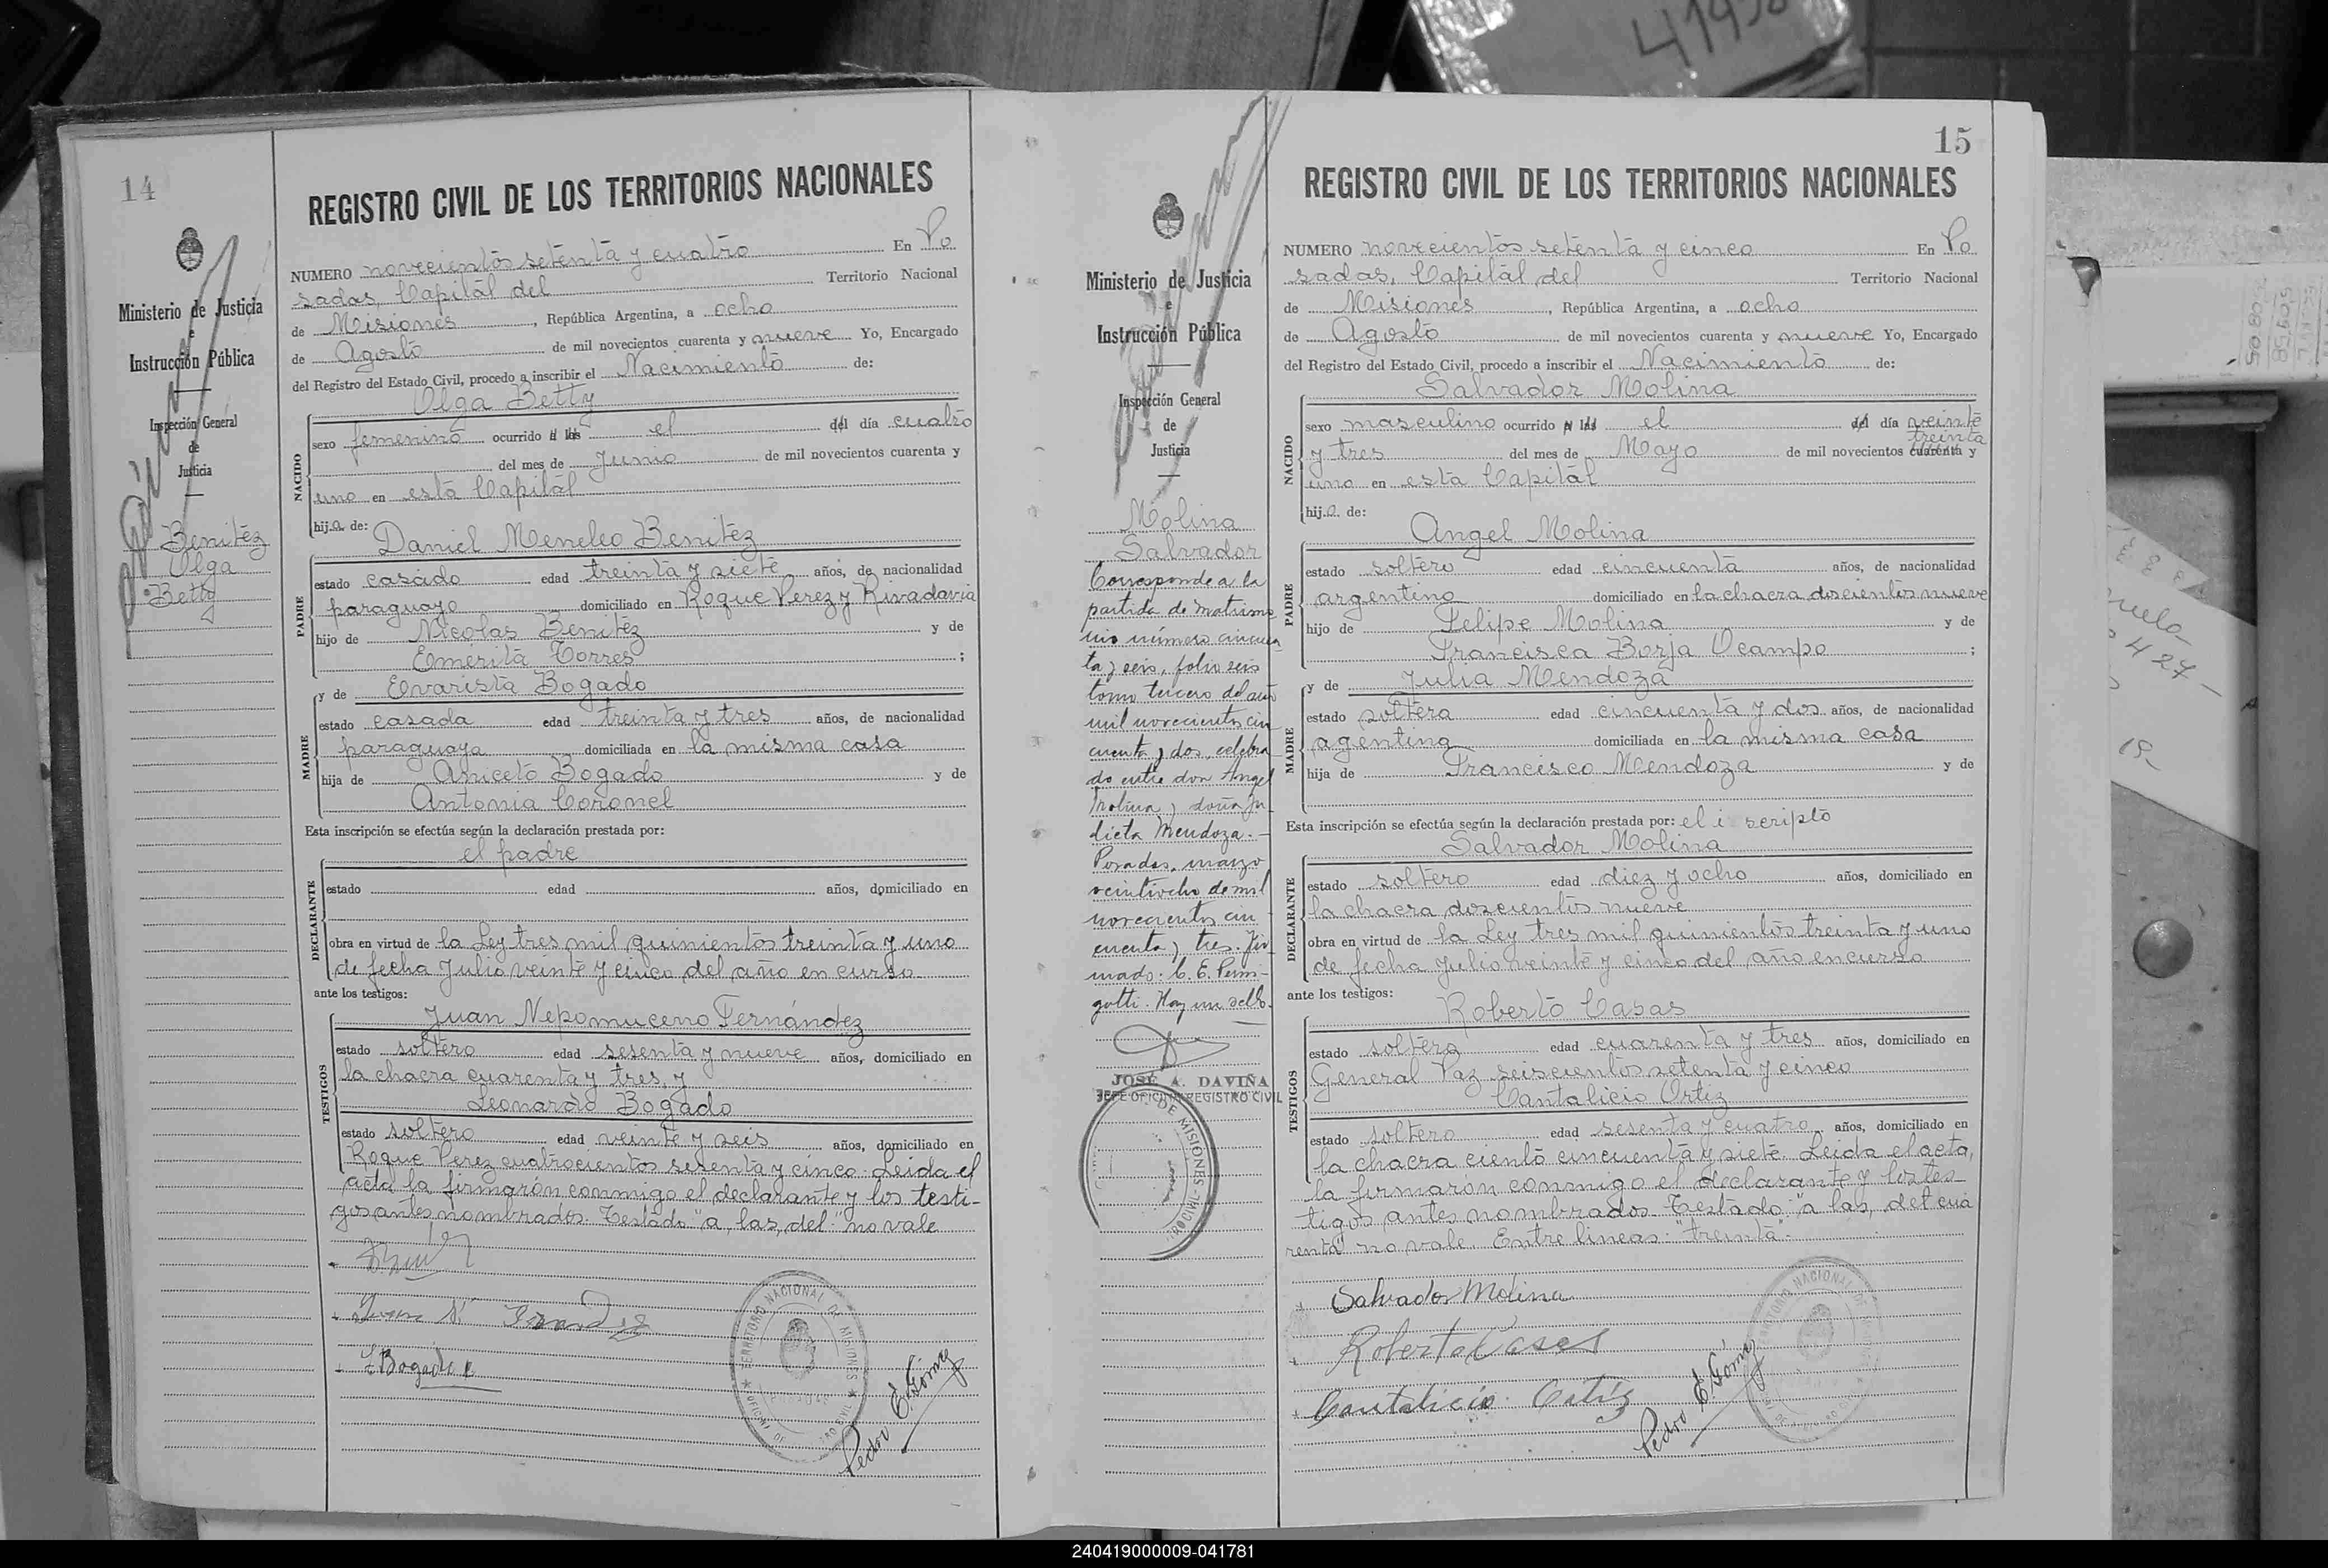 41950
14
Ministerio de Justicia
e
Instrucción Pública
Inspección General
de
Justicia
Benitéz
Olga
Betty
REGISTRO CIVIL DE LOS TERRITORIOS NACIONALES
NUMERO novecientos setenta y cuatro En Po
sadas, Capital del Territorio Nacional
de Misiones, República Argentina, a ocho
de Agosto de mil novecientos cuarenta y nueve Yo, Encargado
del Registro del Estado Civil, procedo a inscribir el Nacimiento de:
Olga Betty
NACIDO
sexo femenino ocurrido a las el del día cuatro
del mes de Junio de mil novecientos cuarenta y
uno en esta Capital
hija de:
Daniel Meneleo Benitéz
PADRE
estado casado edad treinta y siete años, de nacionalidad
paraguayo domiciliado en Roque Perez y Rivadavia
hijo de Nicolas Benitéz y de
Emerita Torres ;
y de Evarista Bogado
MADRE
estado casada edad treinta y tres años, de nacionalidad
paraguaya domiciliada en la misma casa
hija de Aniceto Bogado y de
Antonia Coronel
Esta inscripción se efectúa según la declaración prestada por:
el padre
DECLARANTE
estado edad años, domiciliado en
obra en virtud de la Ley tres mil quinientos treinta y uno
de fecha Julio veinte y cinco del año en curso
ante los testigos:
Juan Nepomuceno Fernández
TESTIGOS
estado soltero edad sesenta y nueve años, domiciliado en
la chacra cuarenta y tres, y
Leonardo Bogado
estado soltero edad veinte y seis años, domiciliado en
Roque Perez cuatrocientos sesenta y cinco. Leida el
acta la firmarón conmigo el declarante y los testi-
gos antes nombrados. Testado: "a, las, del": no vale
Juan N.
L Bogado
TERRITORIO NACIONAL DE MISIONES
Pedro E. Gómez
15
Ministerio de Justicia
e
Instrucción Pública
Inspección General
de
Justicia
Molina
Salvador
Corresponde a la
partida de matrimo
nio número cincuen
ta y seis, folio seis
tomo tercero del año
mil novecientos cin
cuenta y dos, celebra
do entre don Angel
Molina y doña Ju
lieta Mendoza.-
Posadas, marzo
veintiocho de mil
novecientos cin
cuenta y tres. Fir
mado: C. E. Perin-
gotti. Hay un sello.
JOSÉ A. DAVIÑA
JEFE OFICINA REGISTRO CIVIL
DE MISIONES
REGISTRO CIVIL DE LOS TERRITORIOS NACIONALES
NUMERO novecientos setenta y cinco En Po
sadas, Capital del Territorio Nacional
de Misiones, República Argentina, a ocho
de Agosto de mil novecientos cuarenta y nueve Yo, Encargado
del Registro del Estado Civil, procedo a inscribir el Nacimiento de:
Salvador Molina
NACIDO
sexo masculino ocurrido a las el del día veinte
treinta
y tres del mes de Mayo de mil novecientos cuarenta y
uno en esta Capital
hijo de:
Angel Molina
PADRE
estado soltero edad cincuenta años, de nacionalidad
argentino domiciliado en la chacra doscientos nueve
hijo de Felipe Molina y de
Francisca Borja Ocampo ;
y de Julia Mendoza
MADRE
estado soltera edad cincuenta y dos años, de nacionalidad
agentina domiciliada en la misma casa
hija de Francisco Mendoza y de
Esta inscripción se efectúa según la declaración prestada por: el i scripto
Salvador Molina
DECLARANTE
estado soltero edad diez y ocho años, domiciliado en
la chacra doscientos nueve
obra en virtud de la Ley tres mil quinientos treinta y uno
de fecha Julio veinte y cinco del año en curso
ante los testigos:
Roberto Casas
TESTIGOS
estado soltero edad cuarenta y tres años, domiciliado en
General Paz seiscientos setenta y cinco
Cantalicio Ortiz
estado soltero edad sesenta y cuatro años, domiciliado en
la chacra ciento cincuenta y siete. Leida el acta,
la firmarón conmigo el declarante y los tes-
tigos antes nombrados. Testado: "a las, del cua
renta" no vale. Entre lineas: "treinta".
Salvador Molina
Roberto Casas
Cantalicio Ortiz
Pedro E. Gómez
240419000009-041781